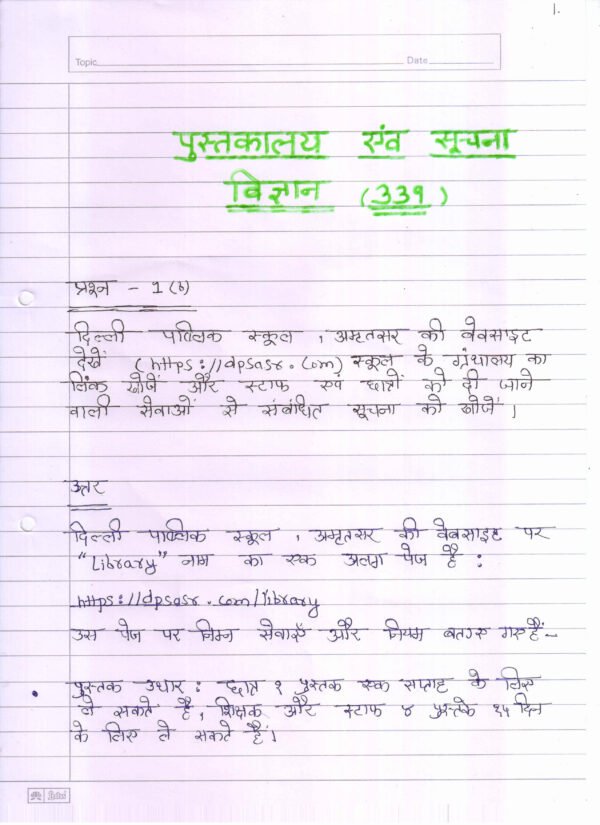 1.
Topic
Date
पुस्तकालय एंव सूचना
विज्ञान (339)
प्रश्न - 1(b)
दिल्ली पब्लिक स्कूल , अमृतसर की वेबसाइट
देखें (https://dpsasr.com) स्कूल के ग्रंथालय का
लिंक खोजें और स्टाफ एवं छात्रों को दी जाने
वाली सेवाओं से संबंधित सूचना को खोजें।
उत्तर
दिल्ली पब्लिक स्कूल , अमृतसर की वेबसाइट पर
"Library" नाम का एक अलग पेज है :
https://dpsasr.com/library
उस पेज पर निम्न सेवाएँ और नियम बताए गए हैं-
• पुस्तक उधार : छात्र १ पुस्तक एक सप्ताह के लिए
ले सकते है, शिक्षक और स्टाफ ४ पुस्तके १५ दिन
के लिए ले सकते हैं।